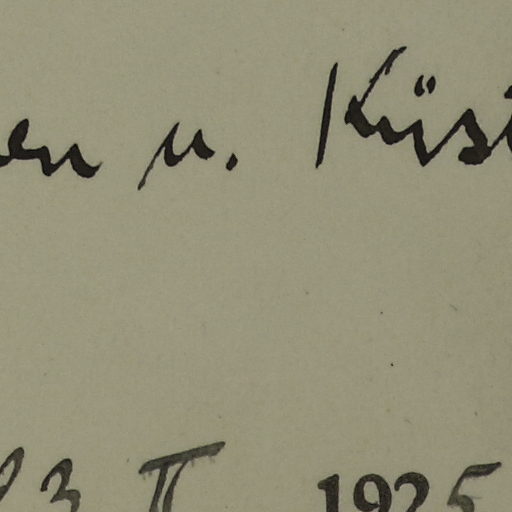 en u. Küst
3 II 1925